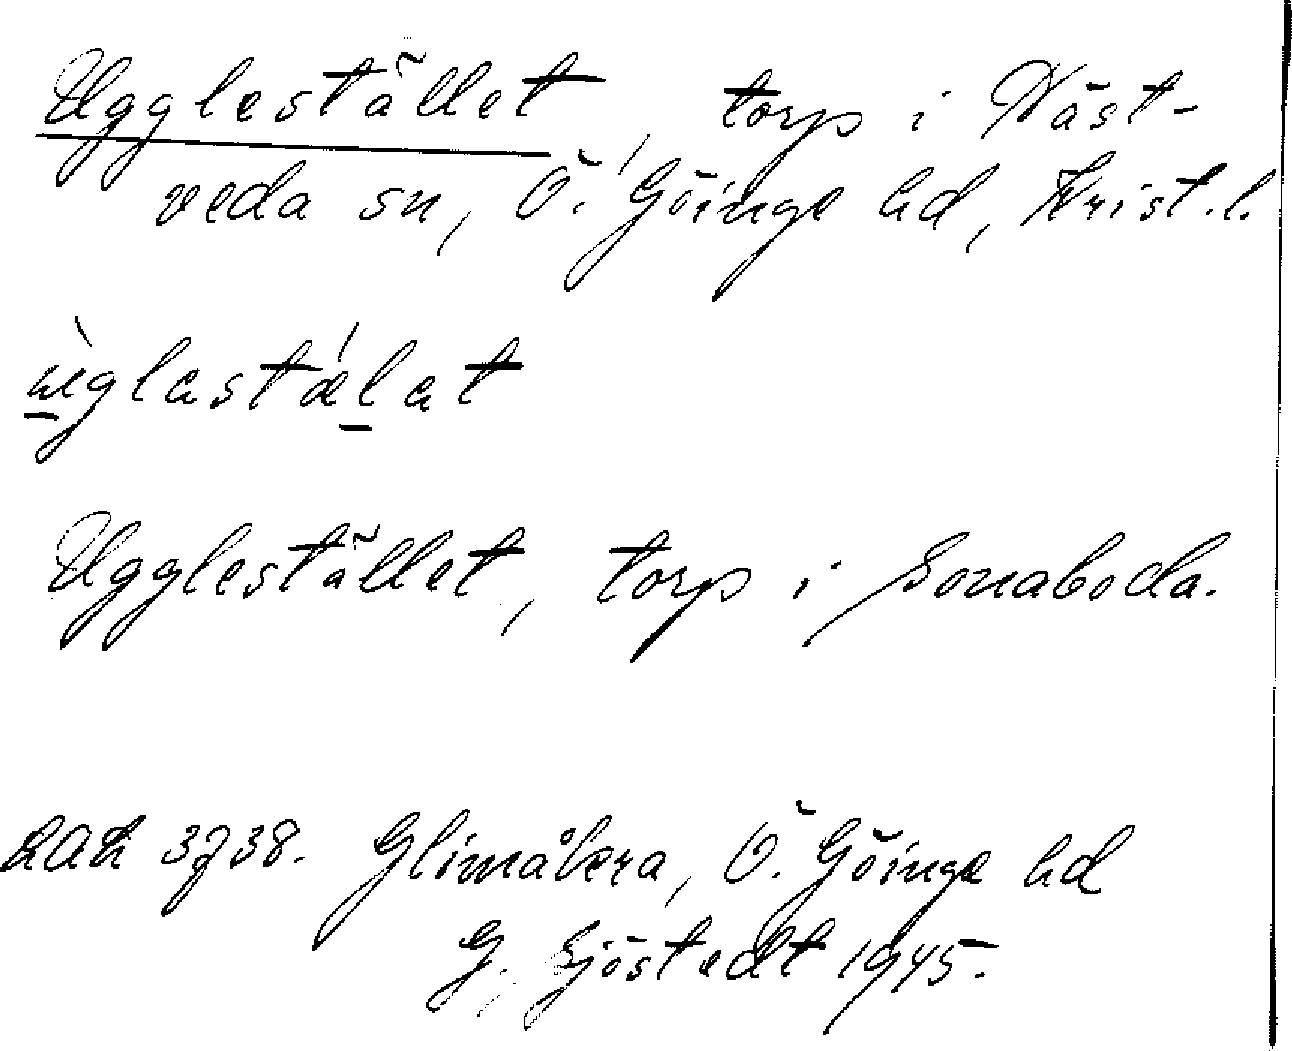 Ugglestället, torp i Näst-
veda sn, Ö. Göinge hd, Krist.l.
ùglastǽlat
Ugglestället, torp i Sonaboda.
LAL 3738. Glimåkra, Ö. Göinge hd
G. Sjöstedt 1945.